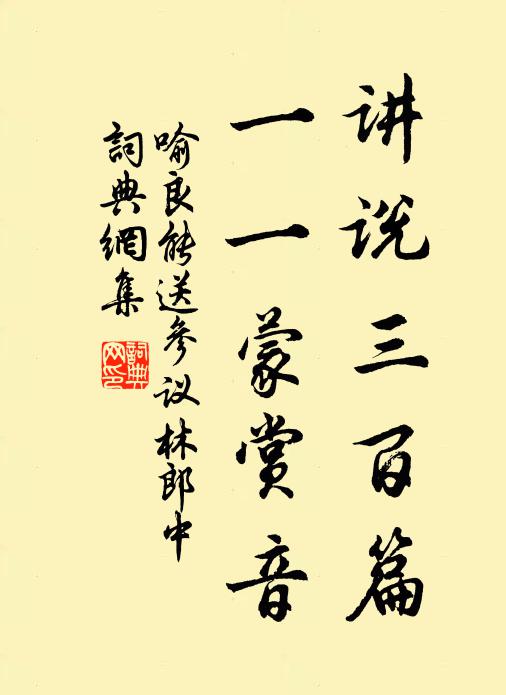 讲说三百篇
一一蒙赏音
喻良能送参议林郎中
詞典網集
詞典网印